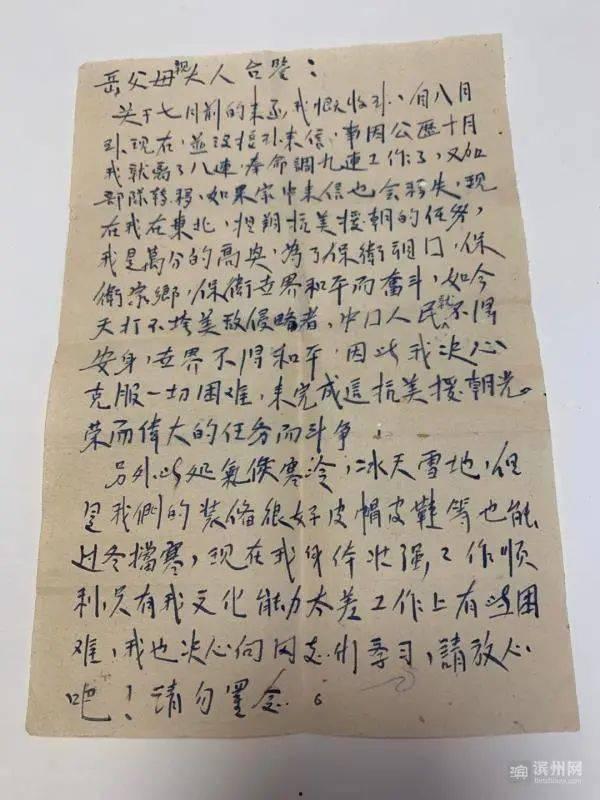 岳父母親大人台鑒：
关于七月前的来函，我恨久收到，自八月
到现在，並没接到来信，事因公歷十月
我就离了八連，奉命調九連工作了，又加
部隊转移，如果家中来信也会移失，现
在我在東北，担翔抗美援朝的任务，
我是萬分的高兴，為了保衛祖囗，保
衛家鄉，保衛世界和平而奋斗，如今
天打不垮美敌侵略者，中囗人民就不得
安身，世界不得和平，因此我决心
克服一切困难，来完成這抗美援朝光
荣而偉大的任务而斗争
另外此处氣侯寒冷，冰天雪地，但
是我們的装偹很好皮帽皮鞋等也能
过冬擋寒，现在我身体壮强，工作順
利，只有我文化能力太差工作上有些困
难，我也决心向同志们学习，請放心
吧！请勿罣念。
滨州网